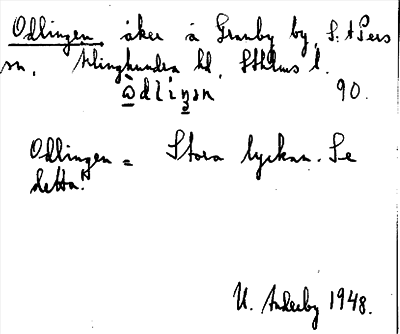 Odlingen, åker å Granby by, S:t Pers
sn, Ärlinghundra hd, Sthlms l.
ὼdliŋən 90.
Odlingen = Stora lyckan. Se
detta!
U. Ankerby 1948.